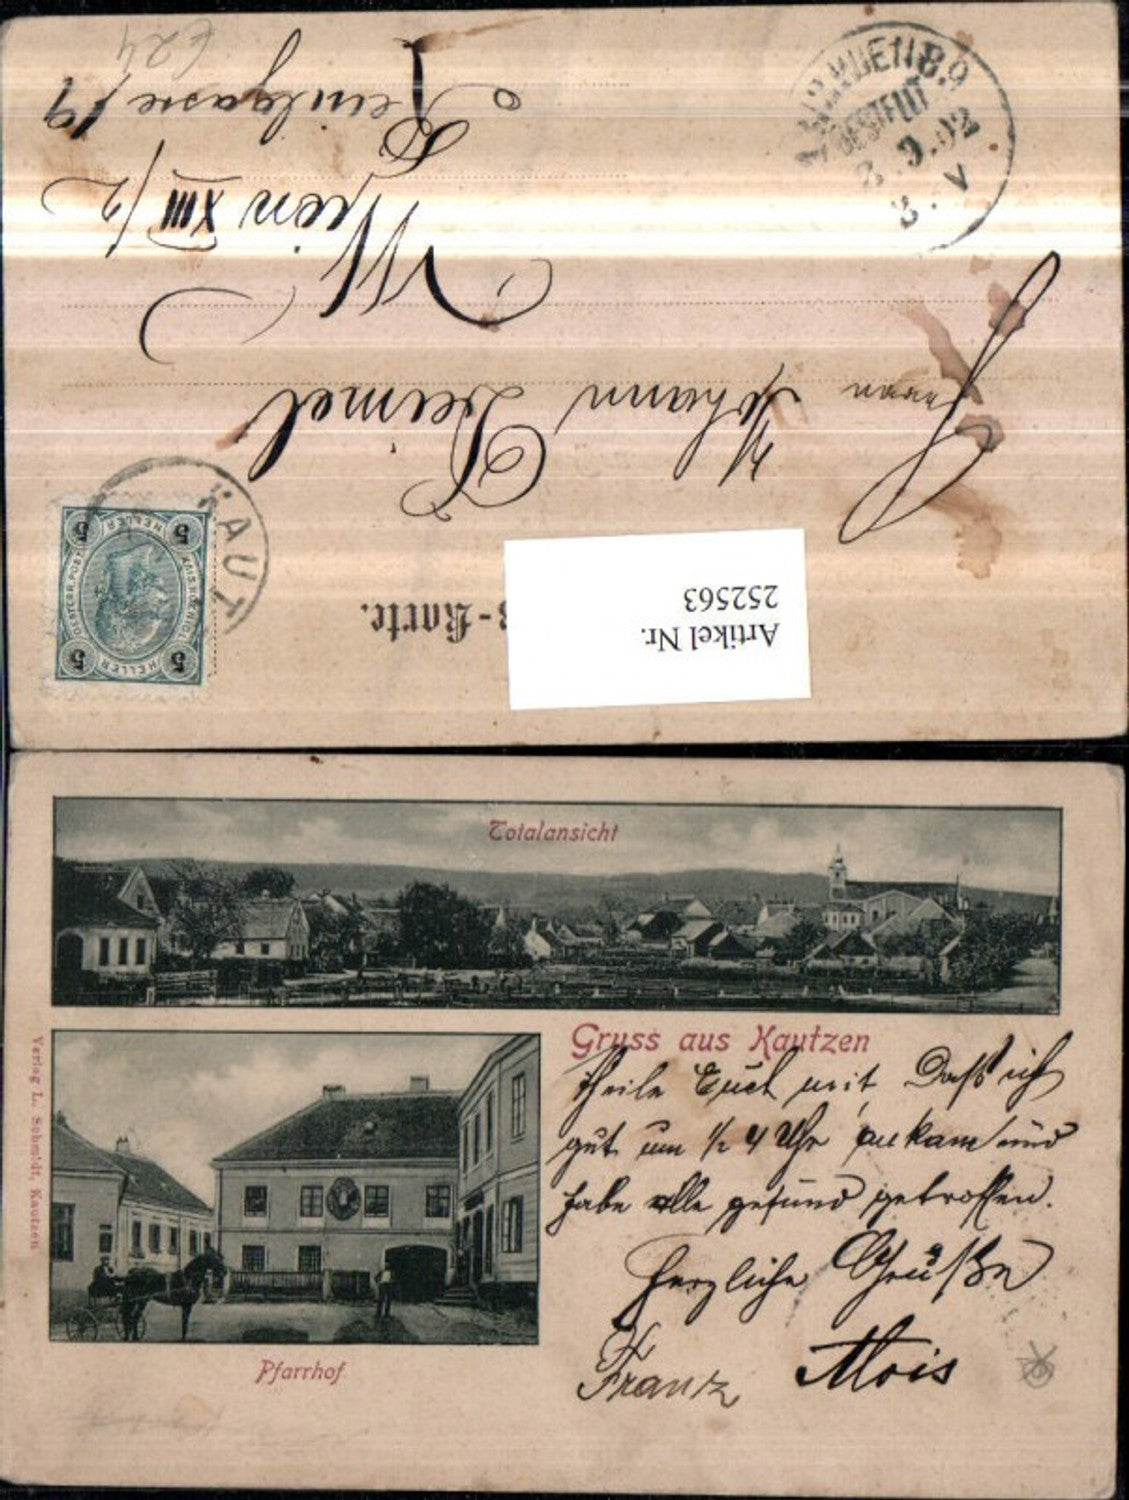 Artikel Nr.
252563
-Karte.
5 HELLER 5
5 HELLER 5
KAUT
Herrn
Johann Deimel
Wien XIII/2
Penzing
gasse 19
624
BESTELLT
2.9.02
Totalansicht
Gruss aus Kautzen
Theile Euch mit, Daß ich
gut um 1/2 4 Uhr ankam und
habe alle gesund getroffen.
Herzliche Grüße
Franz Alois
Pfarrhof
Verlag L. Schmidt, Kautzen